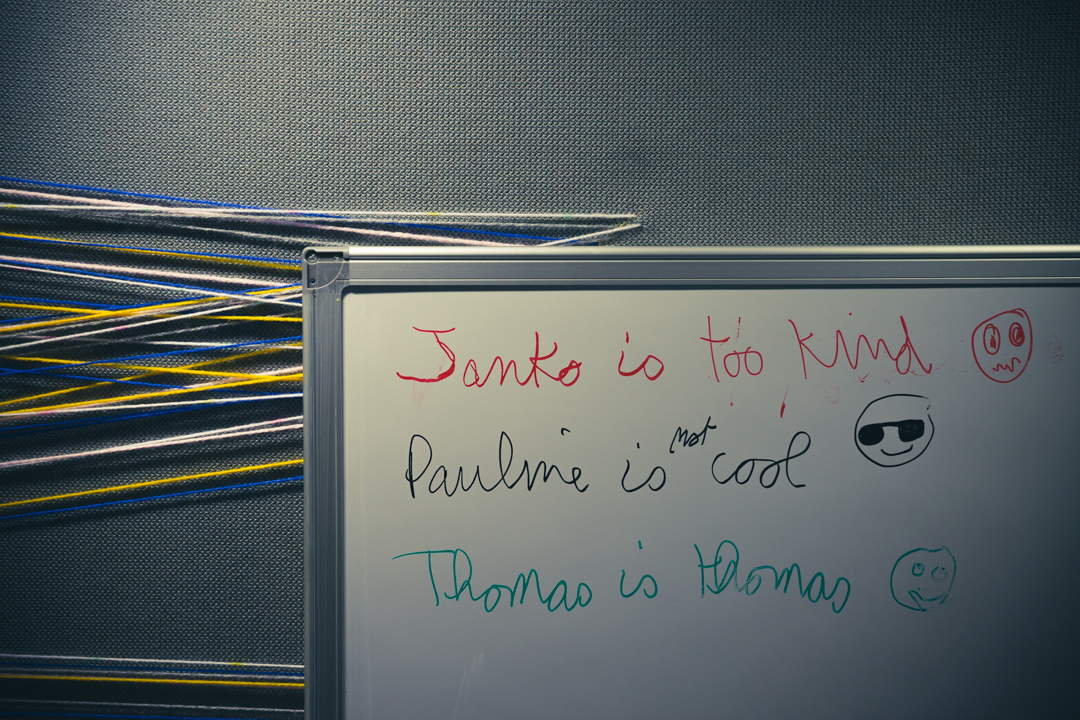 Janko is too kind
Pauline is not cool
Thomas is thomas